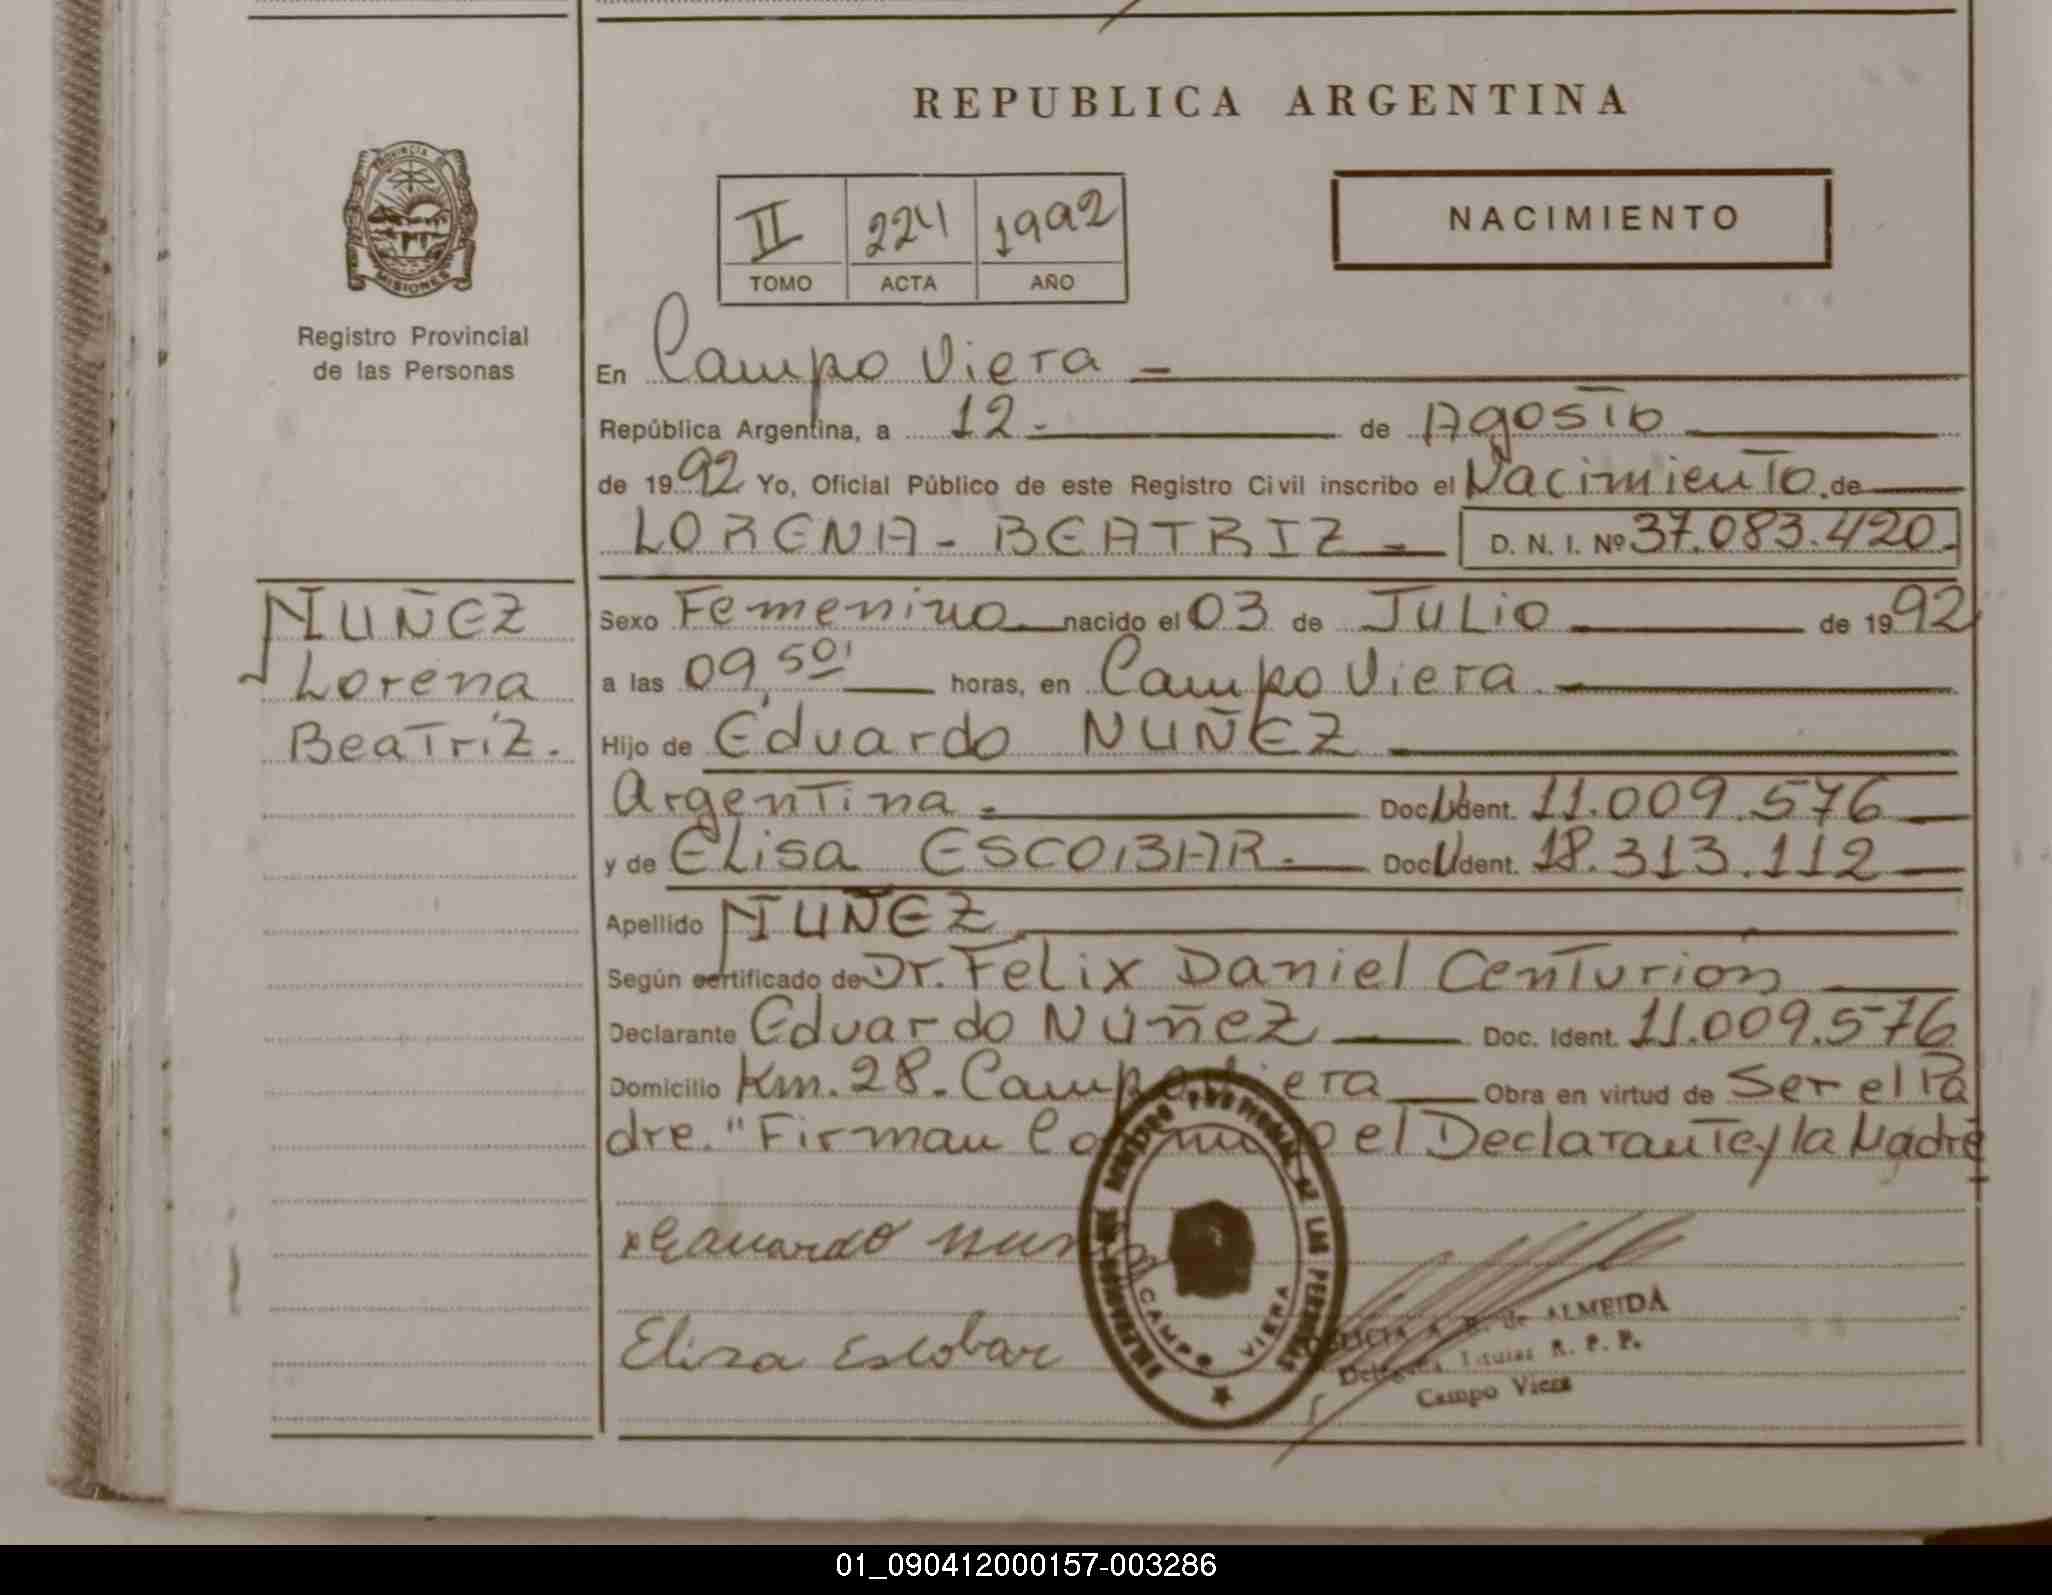 REPUBLICA ARGENTINA
PROVINCIA DE
MISIONES
Registro Provincial
de las Personas
NACIMIENTO
II 224 1992
TOMO ACTA AÑO
En Campo Viera -
República Argentina, a 12- de Agosto
de 1992 Yo, Oficial Público de este Registro Civil inscribo el Nacimiento de
LORENA - BEATRIZ - D. N. I. Nº 37.083.420.-
NUÑEZ
Lorena
Beatriz.
Sexo Femenino nacido el 03 de Julio de 1992
a las 09,50' horas, en Campo Viera
Hijo de Eduardo NUÑEZ
Argentina - Doc. Ident. 11.009.576
y de Elisa ESCOBAR - Doc. Ident. 18.313.112
Apellido NUÑEZ
Según certificado de Dr. Felix Daniel Centurión
Declarante Eduardo Núñez Doc. Ident. 11.009.576
Domicilio Km. 28. Campo Viera Obra en virtud de Ser el Pa
dre. "Firman Conmigo el Declarante y la Madre
Eduardo
Elisa Escobar
CAMPO VIERA
de ALMEIDA
Titular R. P. P.
Campo Viera
01_090412000157-003286